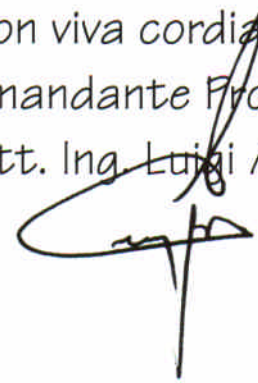 on viva cordia
mandante Pro
tt. Ing. Luigi A